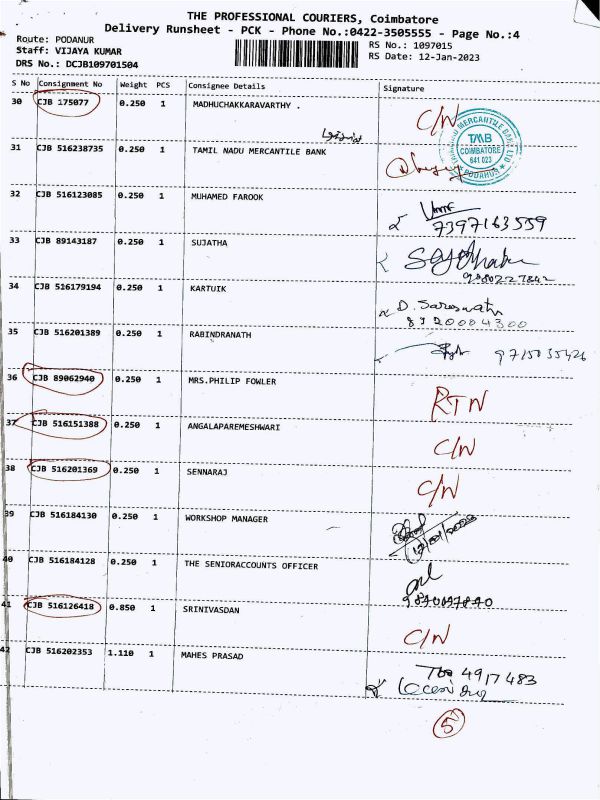 THE PROFESSIONAL COURIERS, Coimbatore
Delivery Runsheet - PCK - Phone No.:0422-3505555 - Page No.:4
Route: PODANUR
RS No.: 1097015
Staff: VIJAYA KUMAR
RS Date: 12-Jan-2023
DRS No.: DCJB109701504
S No Consignment No Weight PCS Consignee Details Signature
30 CJB 175077 0.250 1 MADHUCHAKKARAVARTHY . C/N
31 CJB 516238735 0.250 1 TAMIL NADU MERCANTILE BANK
TAMILNAD MERCANTILE BANK LTD
TMB
COIMBATORE
641 023
PODANUR
32 CJB 516123085 0.250 1 MUHAMED FAROOK
7397163559
33 CJB 89143187 0.250 1 SUJATHA
34 CJB 516179194 0.250 1 KARTUIK D. Saraswathi
8320004300
35 CJB 516201389 0.250 1 RABINDRANATH 9715035426
36 CJB 89062940 0.250 1 MRS.PHILIP FOWLER RTN
37 CJB 516151388 0.250 1 ANGALAPAREMESHWARI C/N
38 CJB 516201369 0.250 1 SENNARAJ C/N
39 CJB 516184130 0.250 1 WORKSHOP MANAGER
12/01/2023
40 CJB 516184128 0.250 1 THE SENIORACCOUNTS OFFICER
41 CJB 516126418 0.850 1 SRINIVASDAN C/N
42 CJB 516202353 1.110 1 MAHES PRASAD
4917483
5